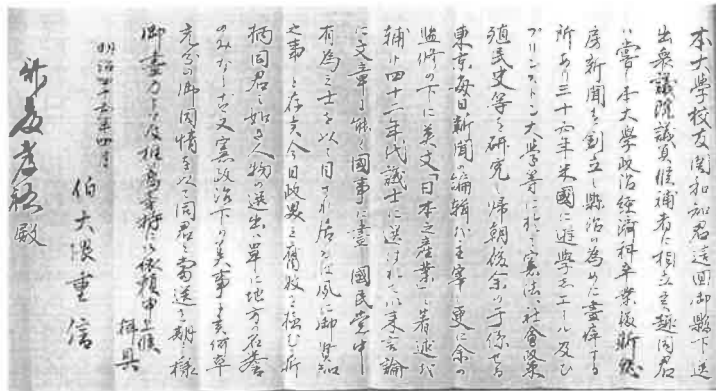 本大學校友関和知君這回御縣下選
出衆議院議員候補者に相立候趣同君
ハ嘗て本大學政治經濟科卒業後新總
房新聞を創立し縣治の為めに盡瘁する
所あり三十六年米國に遊學しエール及び
プリンストン大學等に於て憲法、社會政策
殖民史等を研究し帰朝後余の手係せる
東京毎日新聞の論輯を主宰し更に余の
監修の下に英文「日本之産業」の著述を
輔け四十二年代議士に選はれて以来言論
に文章に能く國事に盡し國民党中
有為之士を以て目され居候は夙に御賢知
之事と存候今日政界之腐敗を極む折
柄同君の如き人物の選出ハ單に地方の名誉
のみならず又憲政治下の美事と候何卒
充分の御同情を以て同君の當選を期し様
御盡力被及推薦旁特に御依頼申上候
拝具
明治四十五年四月
伯大隈重信
殿